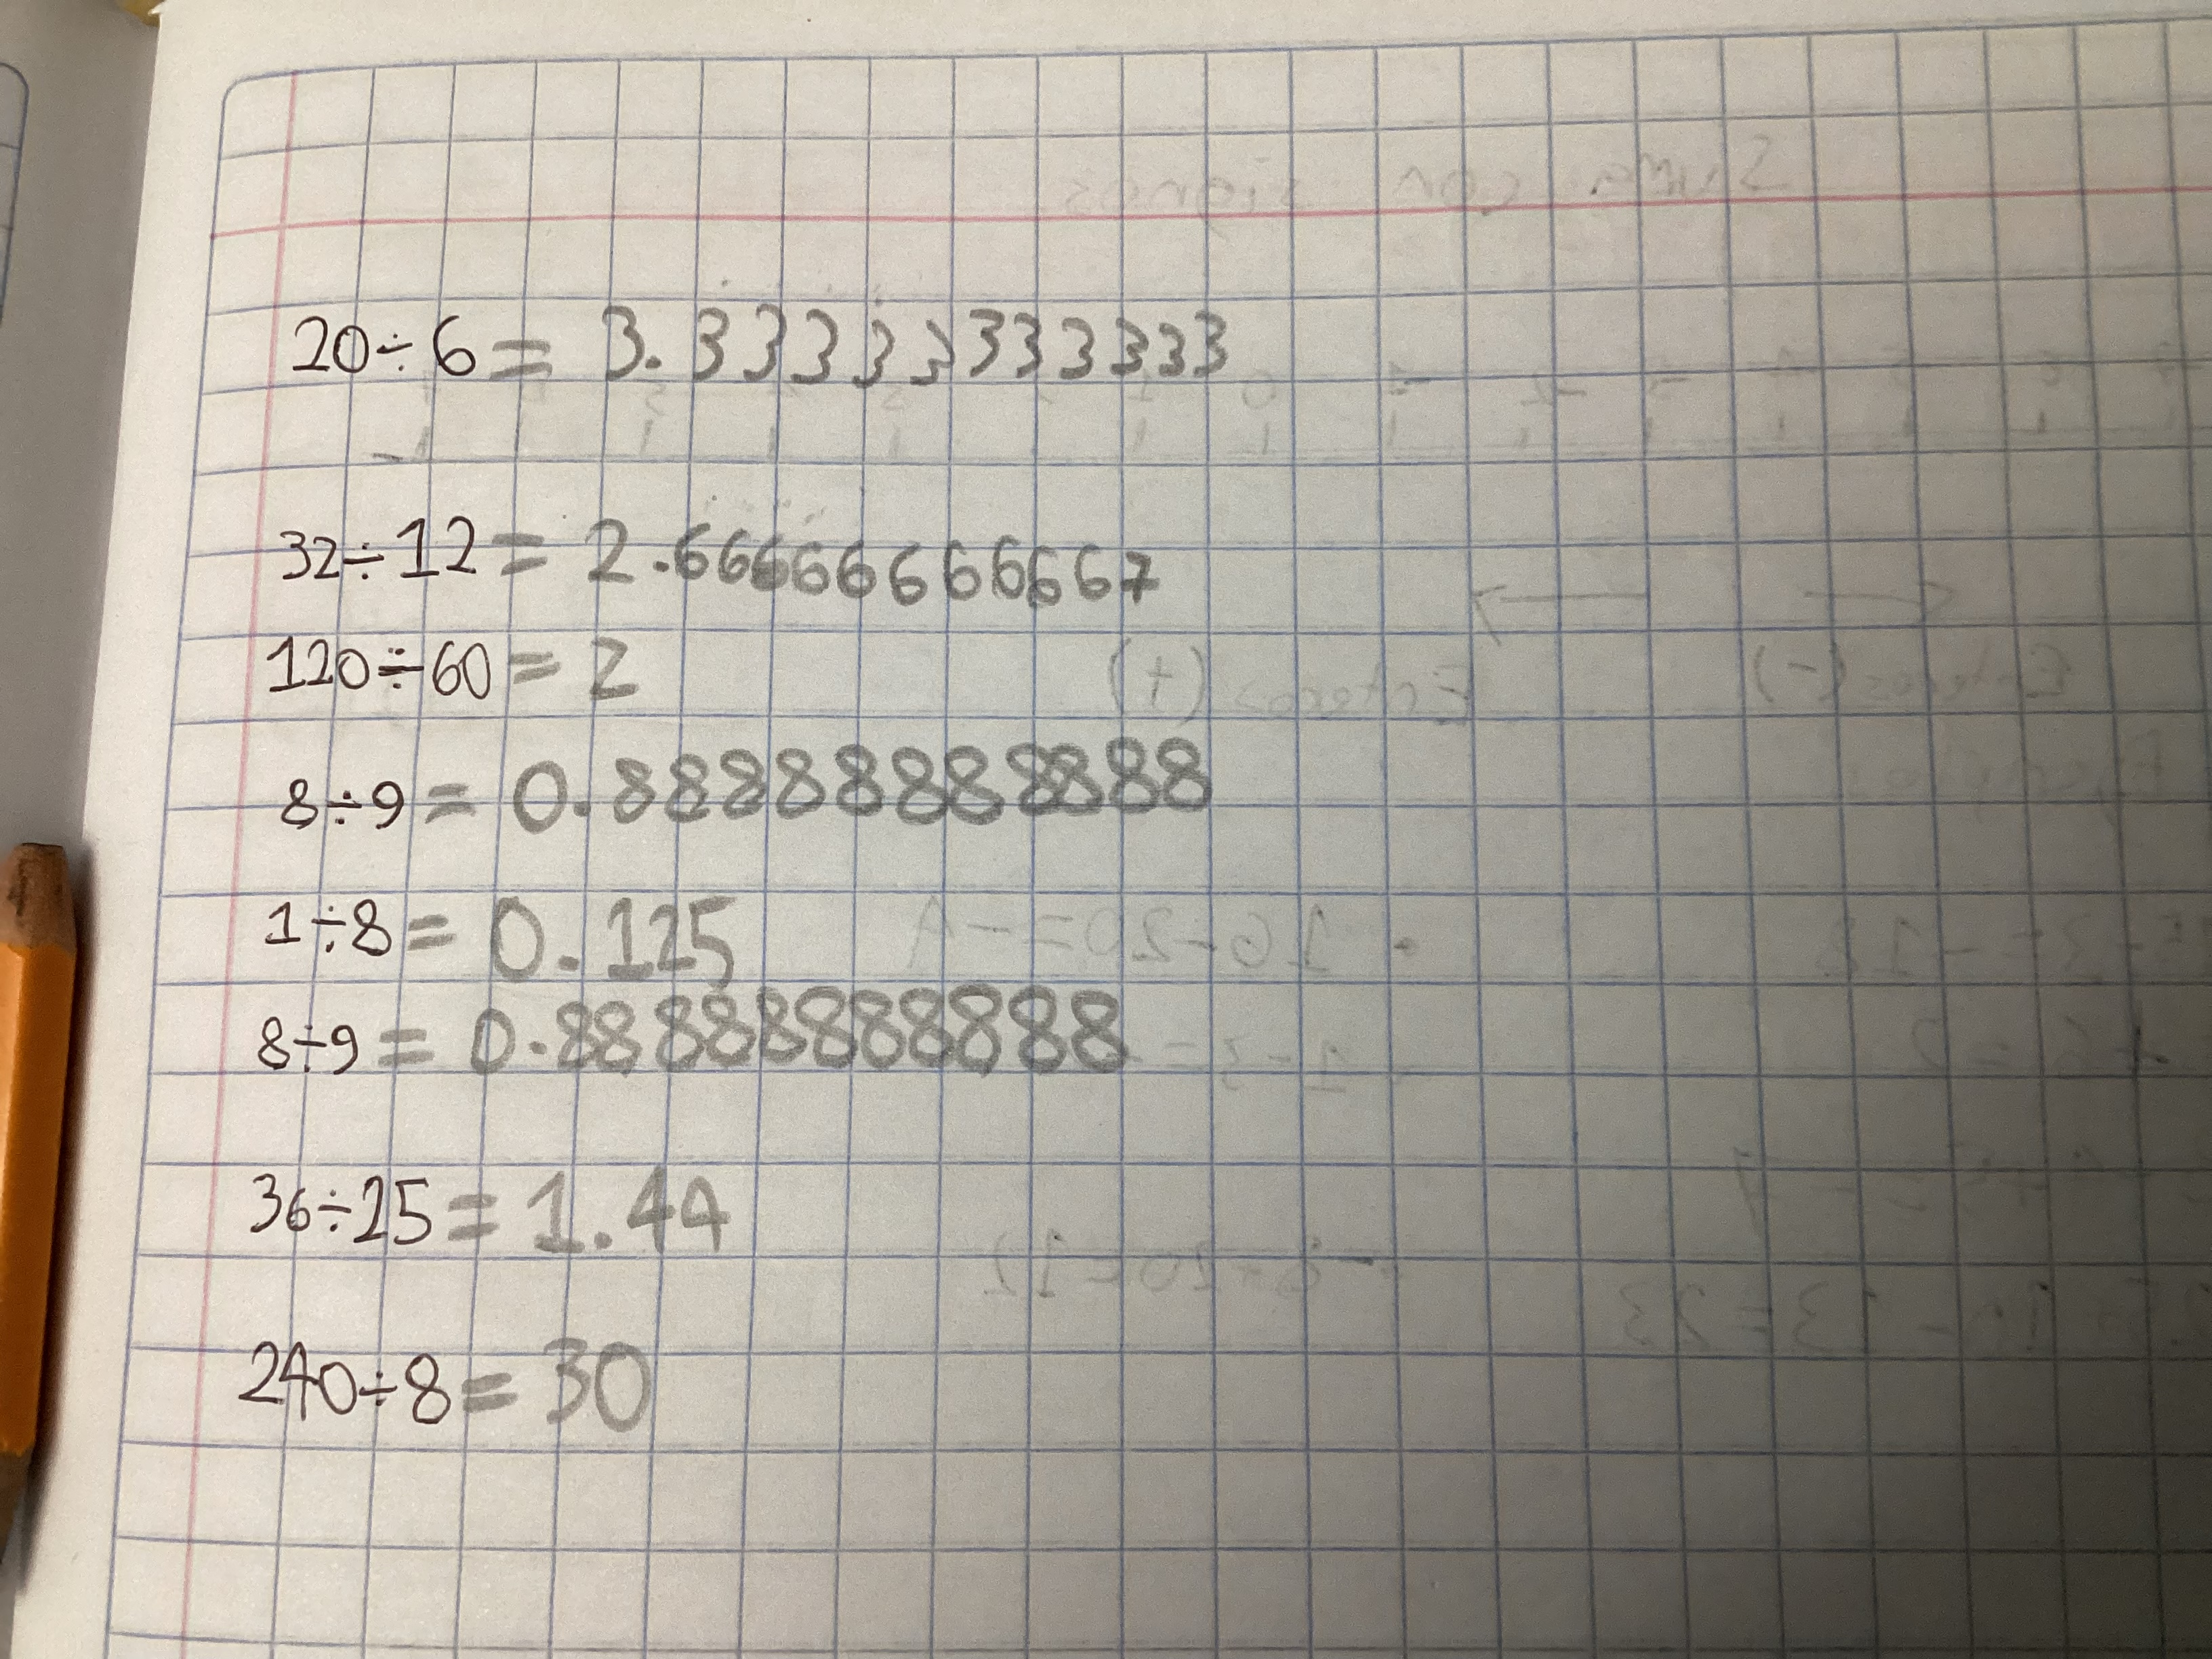 20÷6= 3.333333333333
32÷12= 2.66666666667
120÷60=2
8÷9= 0.888888888888
1÷8= 0.125
8÷9= 0.888888888888
36÷25=1.44
240÷8=30